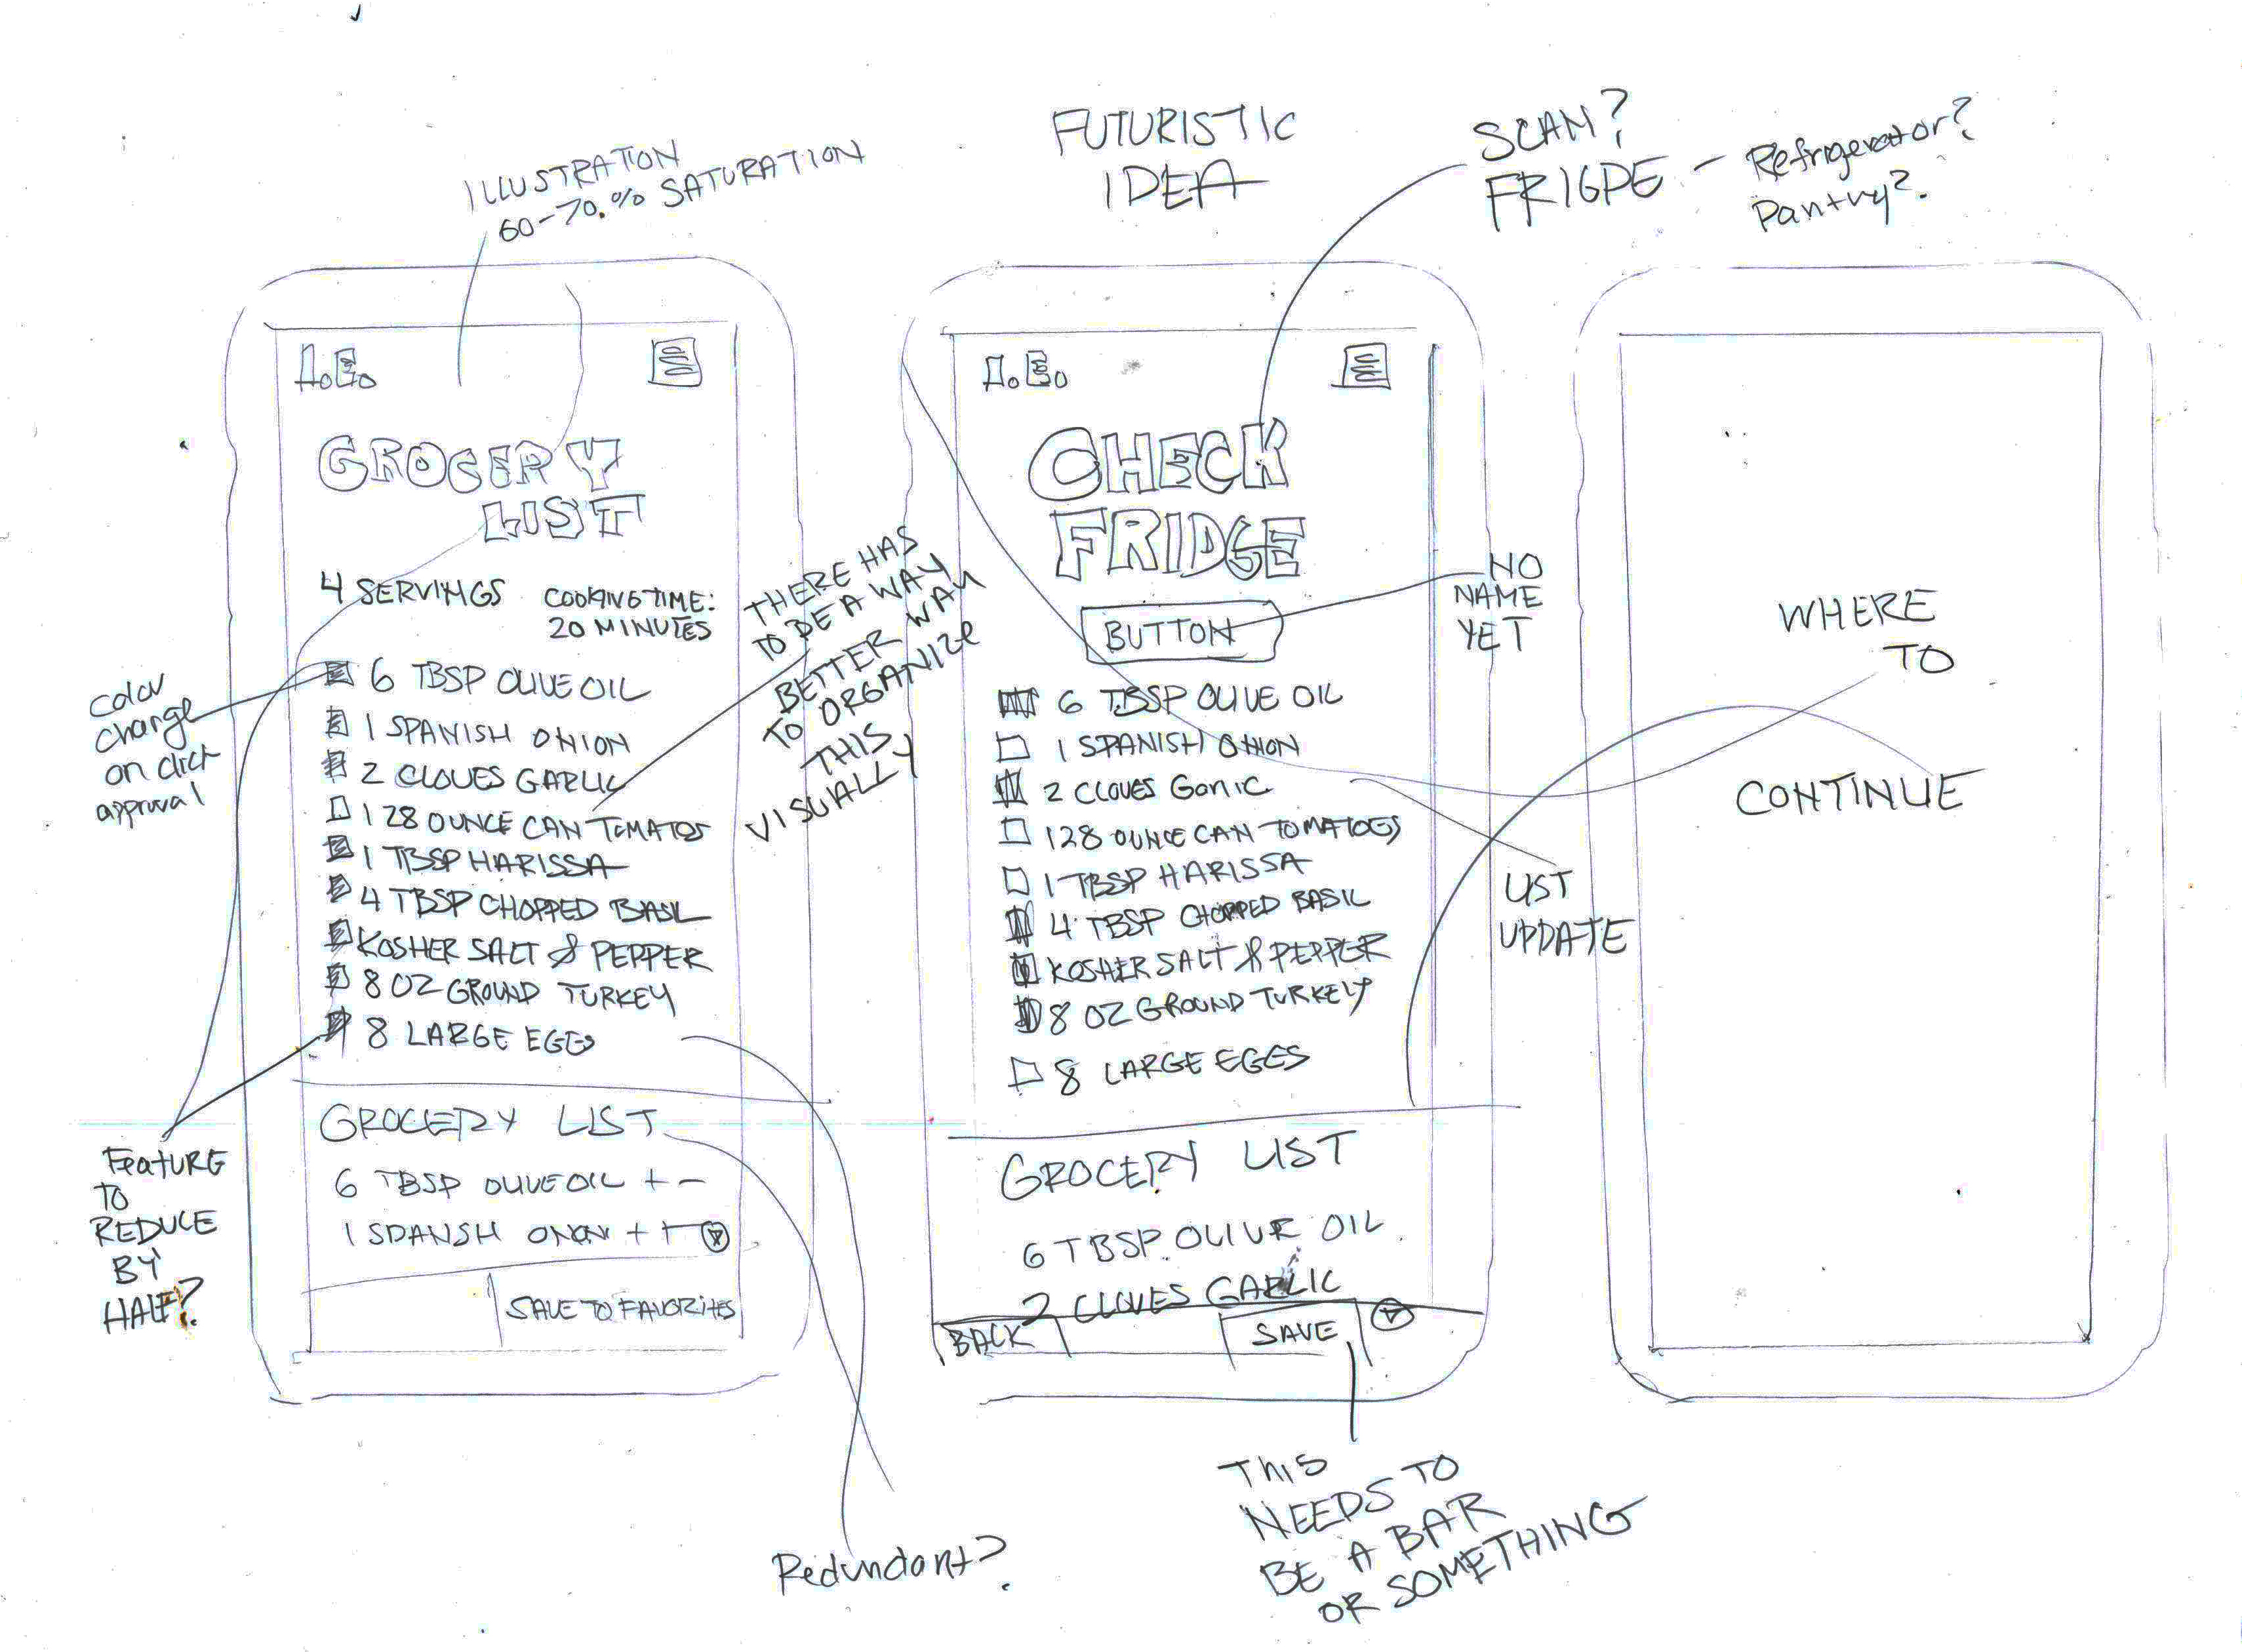 ILLUSTRATION
60-70.% SATURATION
FUTURISTIC
IDEA
SCAM?
FRIGDE - Refrigerator?
Pantry?
GROCERY
LIST
4 SERVINGS
COOKING TIME:
20 MINUTES
6 TBSP OLIVE OIL
1 SPANISH ONION
2 CLOVES GARLIC
1 28 OUNCE CAN TOMATOS
1 TBSP HARISSA
4 TBSP CHOPPED BASIL
KOSHER SALT & PEPPER
8 OZ GROUND TURKEY
8 LARGE EGGS
GROCERY LIST
6 TBSP OLIVE OIL + -
1 SPANSH ONON +
SAVE TO FAVORITES
Color
change
on click
approval
FEATURE
TO
REDUCE
BY
HALF?
THERE HAS
TO BE A WAY
BETTER WAY
TO ORGANIZE
THIS
VISUALLY
Redundant?
CHECK
FRIDGE
BUTTON
NO
NAME
YET
6 TBSP OLIVE OIL
1 SPANISH ONION
2 CLOVES Garlic
1 28 OUNCE CAN TOMATOES
1 TBSP HARISSA
4 TBSP CHOPPED BASIL
KOSHER SALT & PEPPER
8 OZ GROUND TURKEY
8 LARGE EGGES
LIST
UPDATE
GROCERY LIST
6 TBSP OLIVE OIL
2 CLOVES GARLIC
BACK
SAVE
This
NEEDS TO
BE A BAR
OR SOMETHING
WHERE
TO
CONTINUE